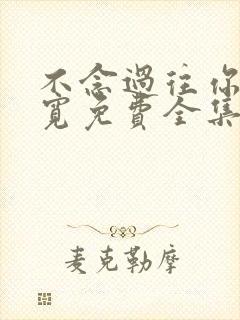 不念過往你
寬免費全集
麦克勒摩